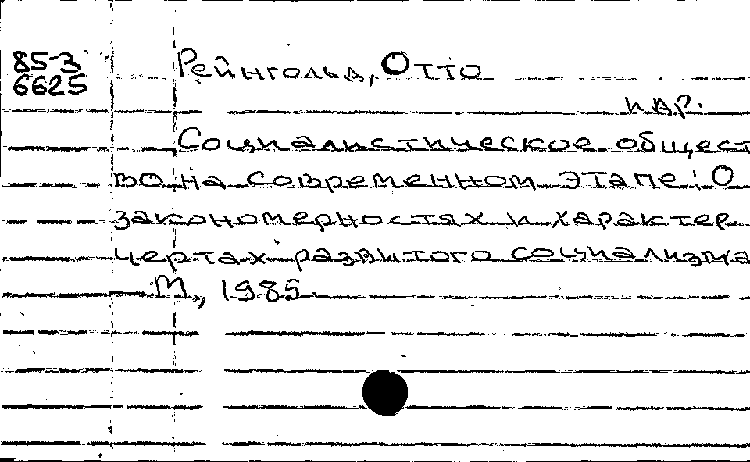 85-3
6625
Рейнгольд, Отто
и др.
Социалистическое общест
во на современном этапе: О
закономерностях и характер
чертах развитого социализма
— М., 1985.